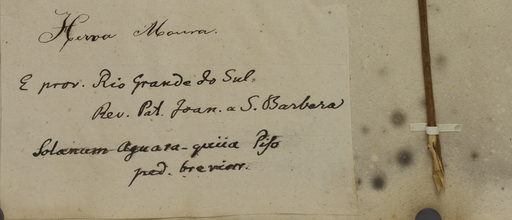 Herva Moura.
E prov. Rio Grande do Sul.
Rev. Pat. Joan. a S. Barbara
Solanum Aguara-quiia Piso
ped. brevior.